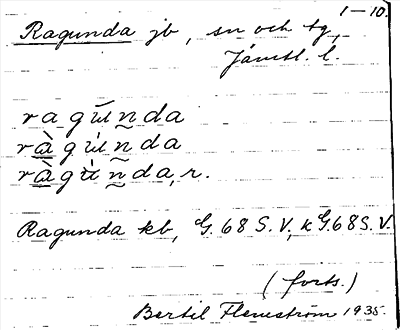 1—10.
Ragunda jb, sn och tg,
Jämtl. l.
ragúnda
ràgúnda
ràgùnda, r.
Ragunda kb, G. 68 S. V, k G. 68 S. V.
(forts.)
Bertil Flemström 1935.